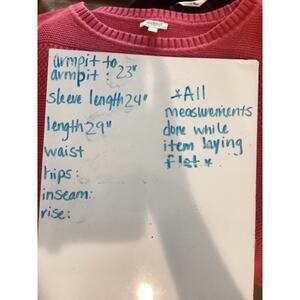 armpit to
armpit: 23"
sleeve length 24"
length 29"
waist
hips:
inseam:
rise:
*All
measurements
done while
item laying
flat*